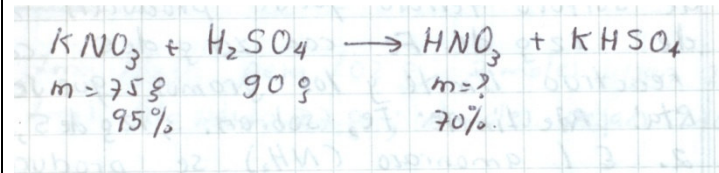 KNO₃ + H₂SO₄ → HNO₃ + KHSO₄
m = 75g 90g m = ?
95% 70%.